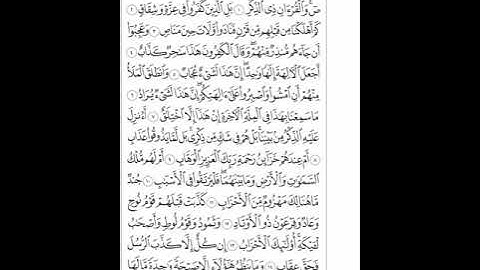 صٓ وَٱلْقُرْءَانِ ذِى ٱلذِّكْرِ ١ بَلِ ٱلَّذِينَ كَفَرُوا۟ فِى عِزَّةٍ وَشِقَاقٍ ٢
كَمْ أَهْلَكْنَا مِن قَبْلِهِم مِّن قَرْنٍ فَنَادَوا۟ وَّلَاتَ حِينَ مَنَاصٍ ٣ وَعَجِبُوٓا۟
أَن جَآءَهُم مُّنذِرٌ مِّنْهُمْ وَقَالَ ٱلْكَٰفِرُونَ هَٰذَا سَٰحِرٌ كَذَّابٌ ٤
أَجَعَلَ ٱلْءَالِهَةَ إِلَٰهًا وَٰحِدًا إِنَّ هَٰذَا لَشَىْءٌ عُجَابٌ ٥ وَٱنطَلَقَ ٱلْمَلَأُ
مِنْهُمْ أَنِ ٱمْشُوا۟ وَٱصْبِرُوا۟ عَلَىٰٓ ءَالِهَتِكُمْ إِنَّ هَٰذَا لَشَىْءٌ يُرَادُ ٦
مَا سَمِعْنَا بِهَٰذَا فِى ٱلْمِلَّةِ ٱلْءَاخِرَةِ إِنْ هَٰذَآ إِلَّا ٱخْتِلَٰقٌ ٧ أَءُنزِلَ
عَلَيْهِ ٱلذِّكْرُ مِنۢ بَيْنِنَا بَلْ هُمْ فِى شَكٍّ مِّن ذِكْرِى بَل لَّمَّا يَذُوقُوا۟ عَذَابِ
٨ أَمْ عِندَهُمْ خَزَآئِنُ رَحْمَةِ رَبِّكَ ٱلْعَزِيزِ ٱلْوَهَّابِ ٩ أَمْ لَهُم مُّلْكُ
ٱلسَّمَٰوَٰتِ وَٱلْأَرْضِ وَمَا بَيْنَهُمَا فَلْيَرْتَقُوا۟ فِى ٱلْأَسْبَٰبِ ١٠ جُندٌ
مَّا هُنَالِكَ مَهْزُومٌ مِّنَ ٱلْأَحْزَابِ ١١ كَذَّبَتْ قَبْلَهُمْ قَوْمُ نُوحٍ
وَعَادٌ وَفِرْعَوْنُ ذُو ٱلْأَوْتَادِ ١٢ وَثَمُودُ وَقَوْمُ لُوطٍ وَأَصْحَٰبُ
لْـَٔيْكَةِ أُو۟لَٰٓئِكَ ٱلْأَحْزَابُ ١٣ إِن كُلٌّ إِلَّا كَذَّبَ ٱلرُّسُلَ
فَحَقَّ عِقَابِ ١٤ وَمَا يَنظُرُ هَٰٓؤُلَآءِ إِلَّا صَيْحَةً وَٰحِدَةً مَّا لَهَا